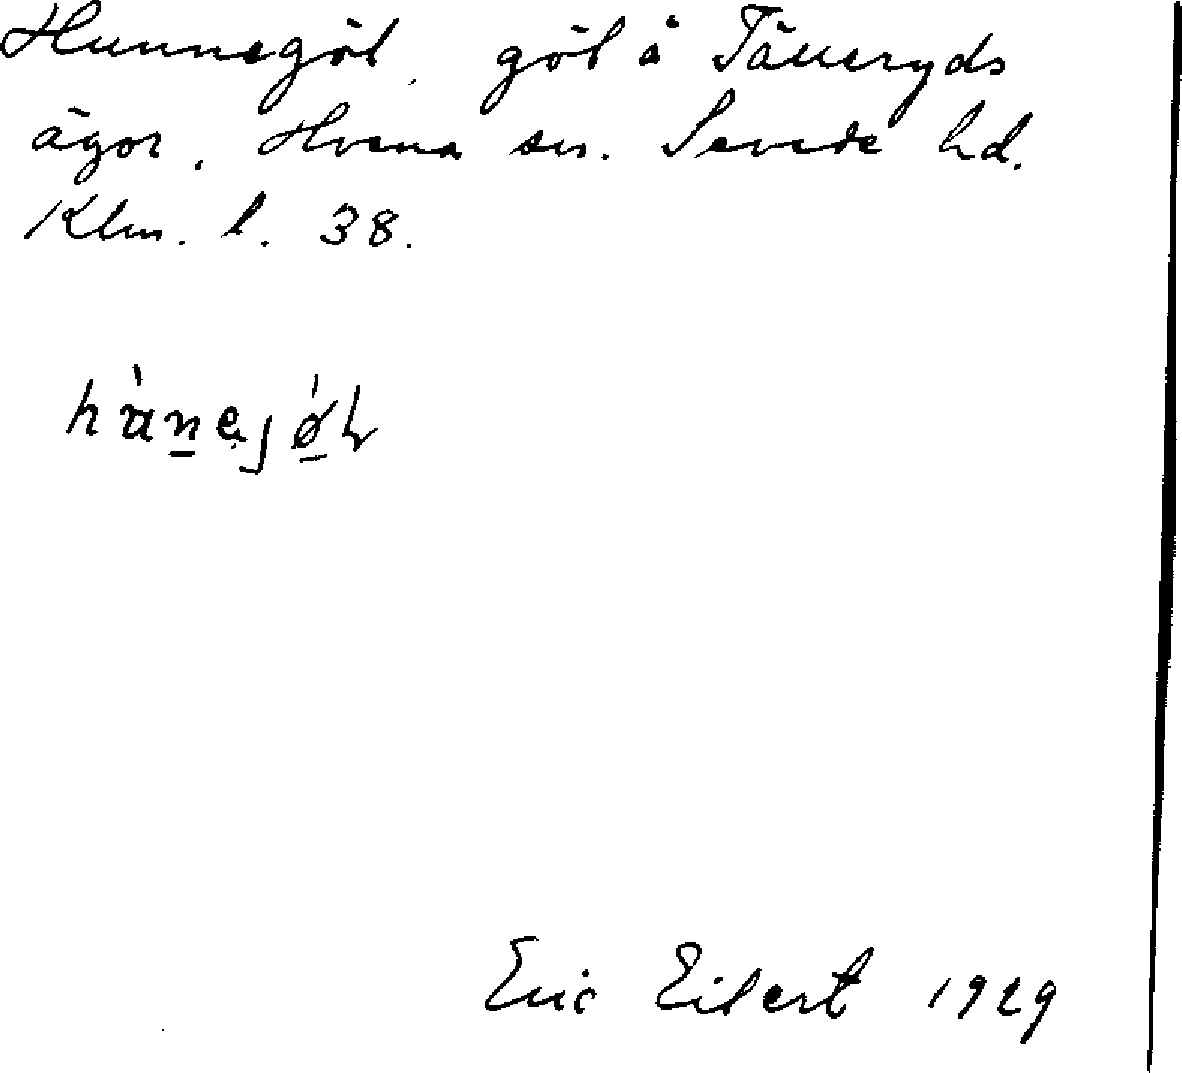 Hunnegöl, göl å Tälleryds
ägor, Hvena sn. Sevede hd.
Klm. l. 38.
Eric Eilert 1929